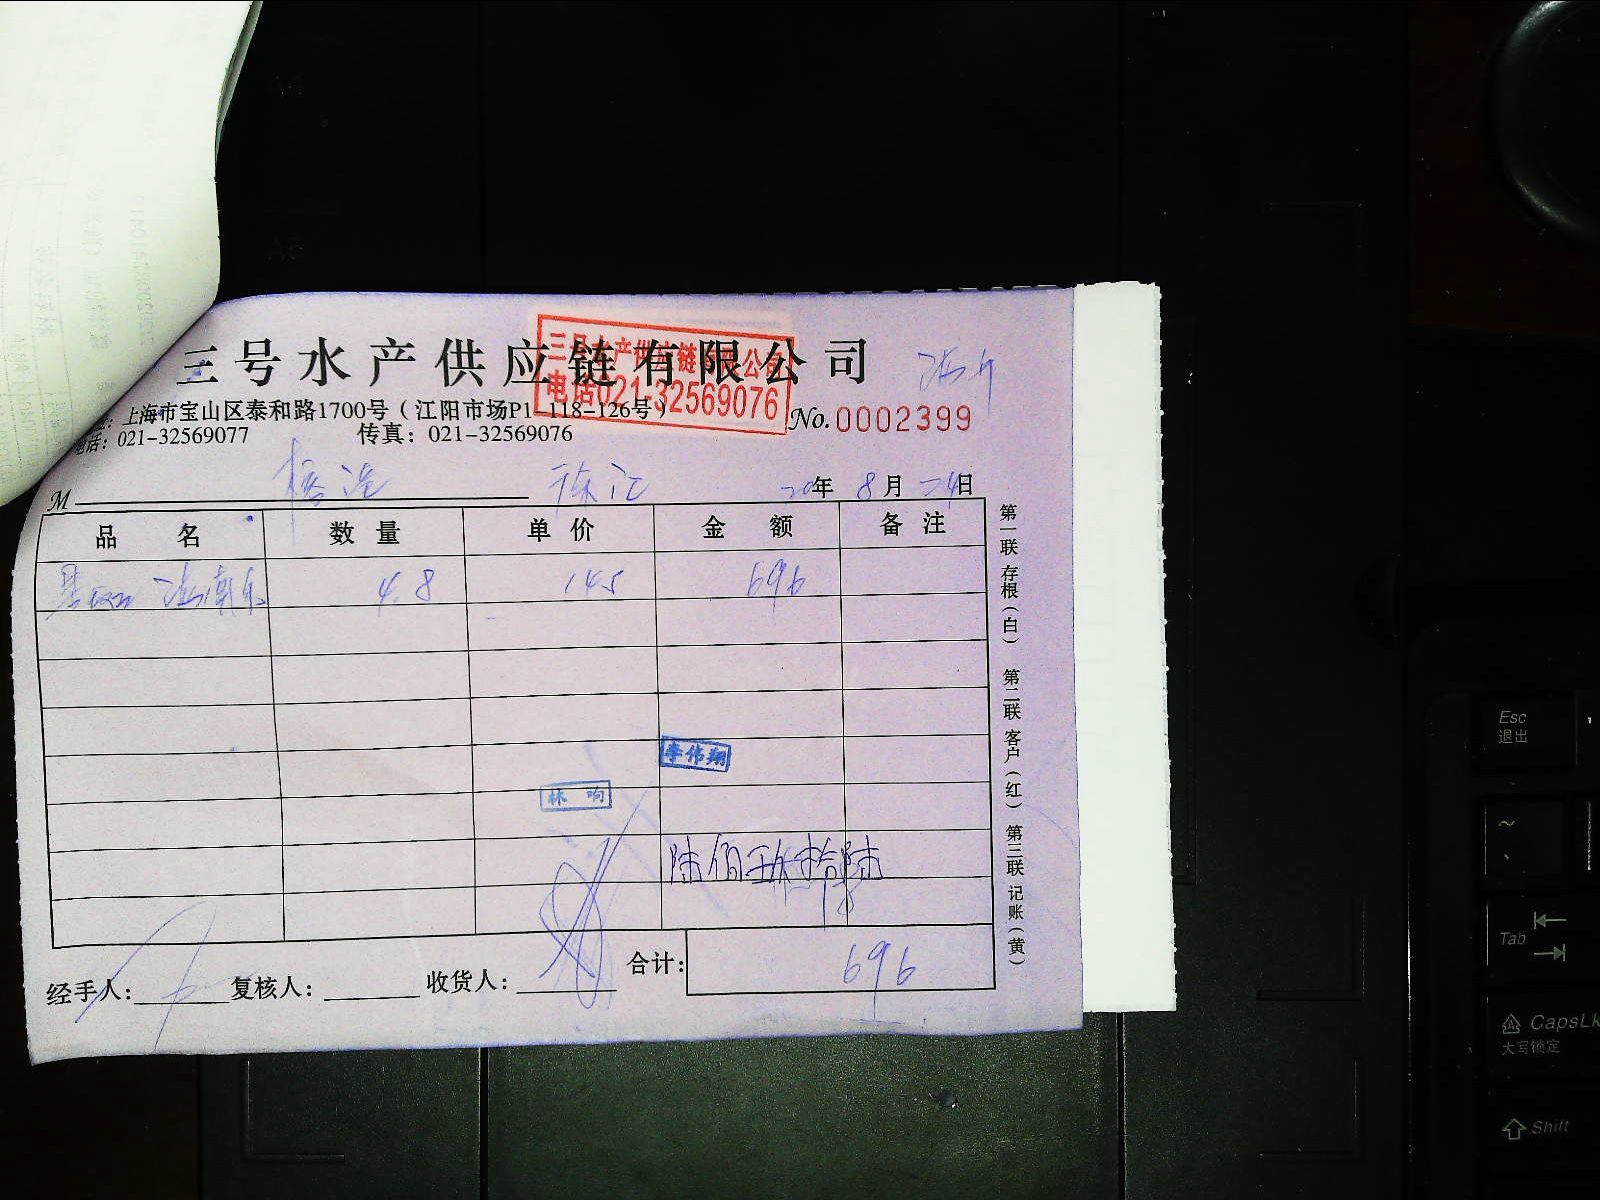 三号水产供应链有限公司
三号水产供应链有限公司
电话021-32569076
上海市宝山区泰和路1700号（江阳市场P1-118-126号）
No.0002399
电话：021-32569077 传真：021-32569076
M 徐汇 20年 8月 24日
品名 数量 单价 金额 备注
4.8 145 696
李伟翔
林 响
陆佰玖拾陆
经手人： 复核人： 收货人： 合计： 696
第一联 存根（白） 第二联 客户（红） 第三联 记账（黄）
Esc
退出
~
Tab
CapsLk
大写锁定
Shift